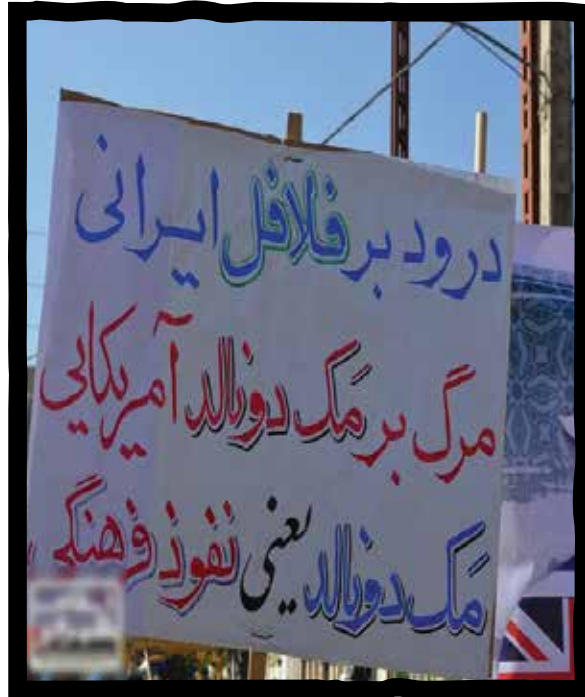 درود بر فلافل ایرانی
مرگ بر مک دونالد آمریکایی
مک دونالد یعنی نفوذ فرهنگی